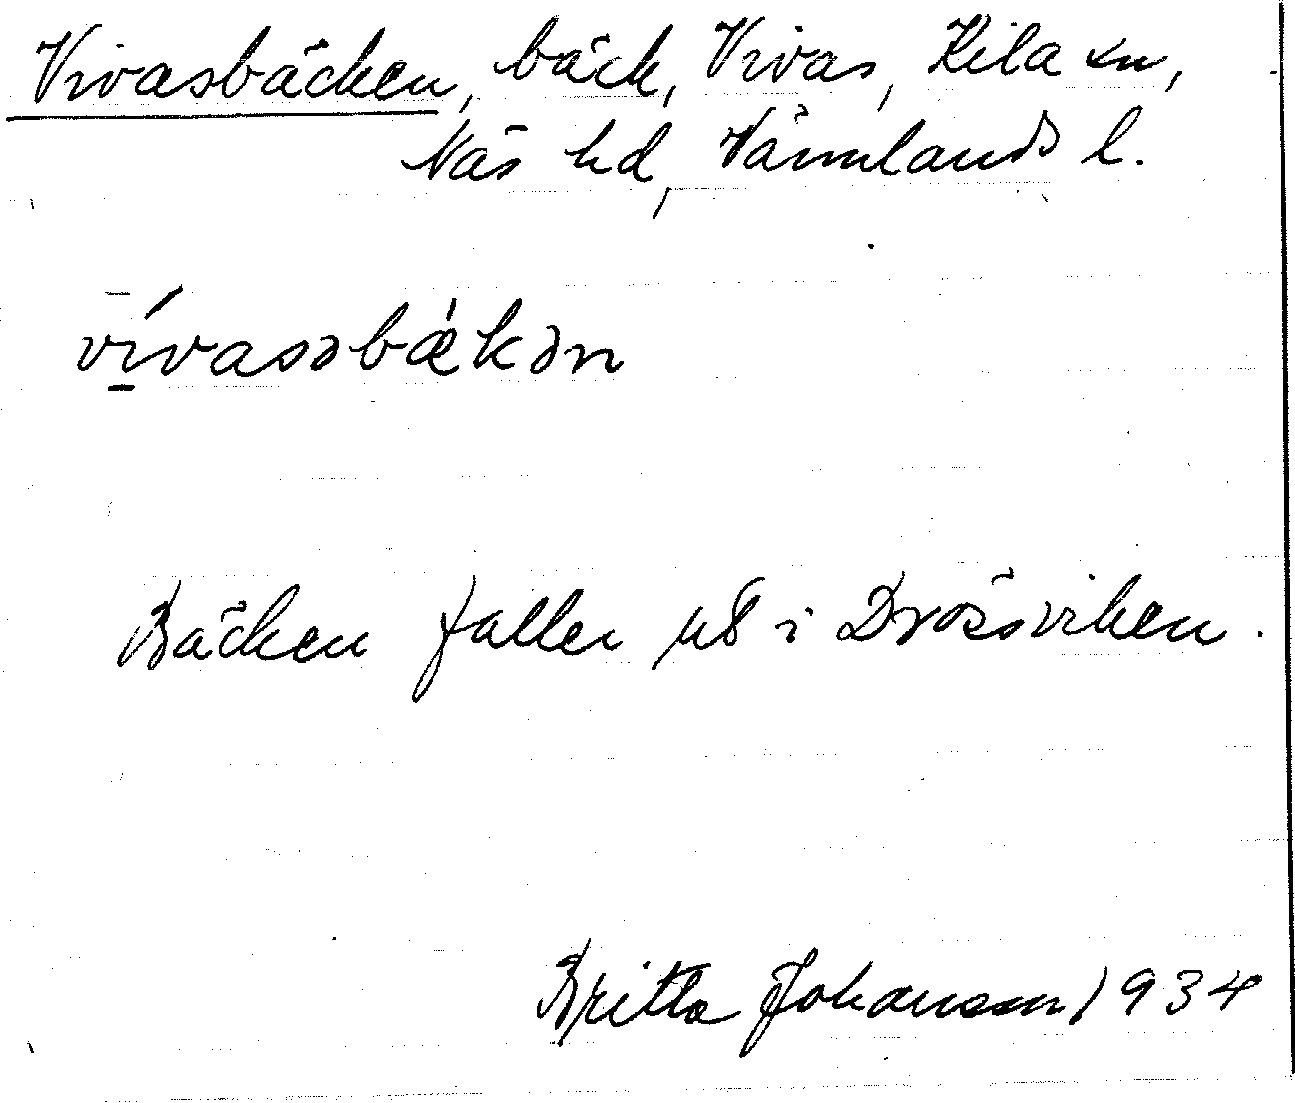 Vivasbäcken, bäck, Vivas, Kila sn,
Näs hd, Värmlands l.
vívasəbǽkən
Bäcken faller ut i Drösviken.
Britta Johansson 1934